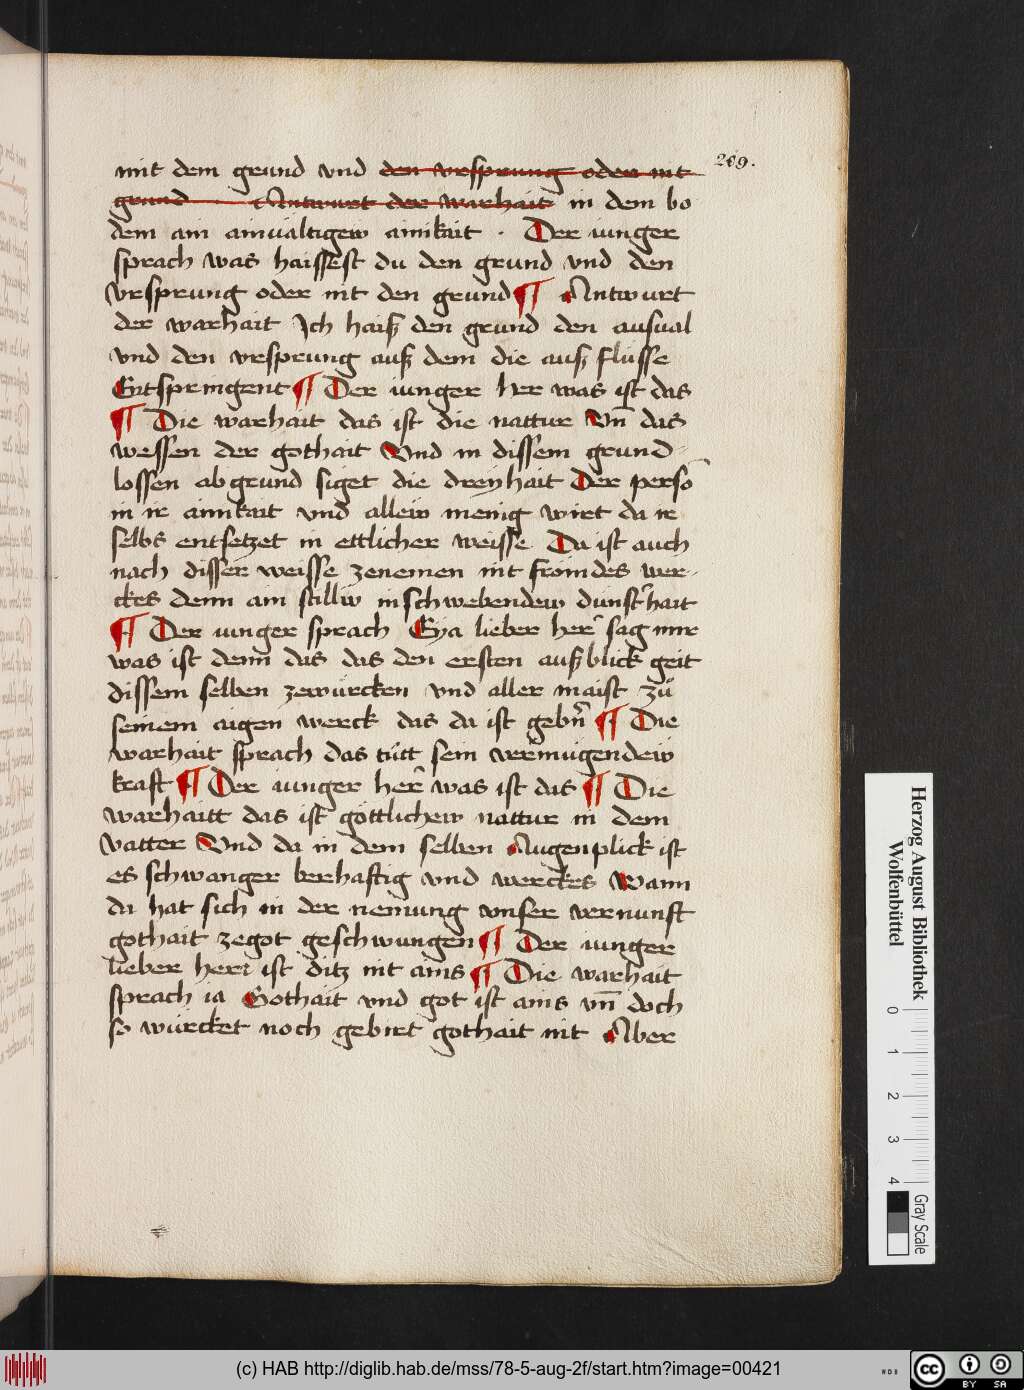 209.
mit dem grund vnd den vrsprung oder nit
grund Antwurt der warhait in dem bo
dem ain ainualtigew ainikait . Der iunger
sprach was haissest du den grund vnd den
vrsprung oder nit den grund ¶ Antwurt
der warhait Ich haiß den grund den ausual
vnd den vrsprung auß dem die auß flüsse
Entspringent ¶ Der iunger her was ist das
¶ Die warhait das ist die nattur Vn̄ das
wessen der gothait Vnd in dissem grund
lossen abgrund siget die dreyhait Der persō
in ir ainikait vnd allew menig wirt da ir
selbs entsetzet in ettlicher weisse Da ist auch
nach disser weisse zenemen nit frömdes wer-
ckes denn ain stillw inschwebendew dunst'hait
¶ Der iunger sprach Eya lieber her' sag mir
was ist denn das das den ersten außblick geit
dissem selben zewürcken vnd aller maist zů
seinem aigen werck das da ist gebn̄ ¶ Die
warhait sprach das tůtt sein vermügendew
kraft ¶ Der iunger her' was ist das ¶ Die
warhaitt das ist göttlichew nattur in dem
vatter Vnd da in dem selben Augenplick ist
es schwanger berhaftig vnd werckes Wann
da hat sich in der nemung vnser vernunft
gothait zegot geschwungen ¶ Der iunger
lieber herr ist ditz nit ains ¶ Die warhait
sprach ia Gothait vnd got ist ains vn̄ doch
so würcket noch gebirt gothait nit Aber
Herzog August Bibliothek
Wolfenbüttel
0 1 2 3 4
Gray Scale
(c) HAB http://diglib.hab.de/mss/78-5-aug-2f/start.htm?image=00421
WDB
cc BY SA